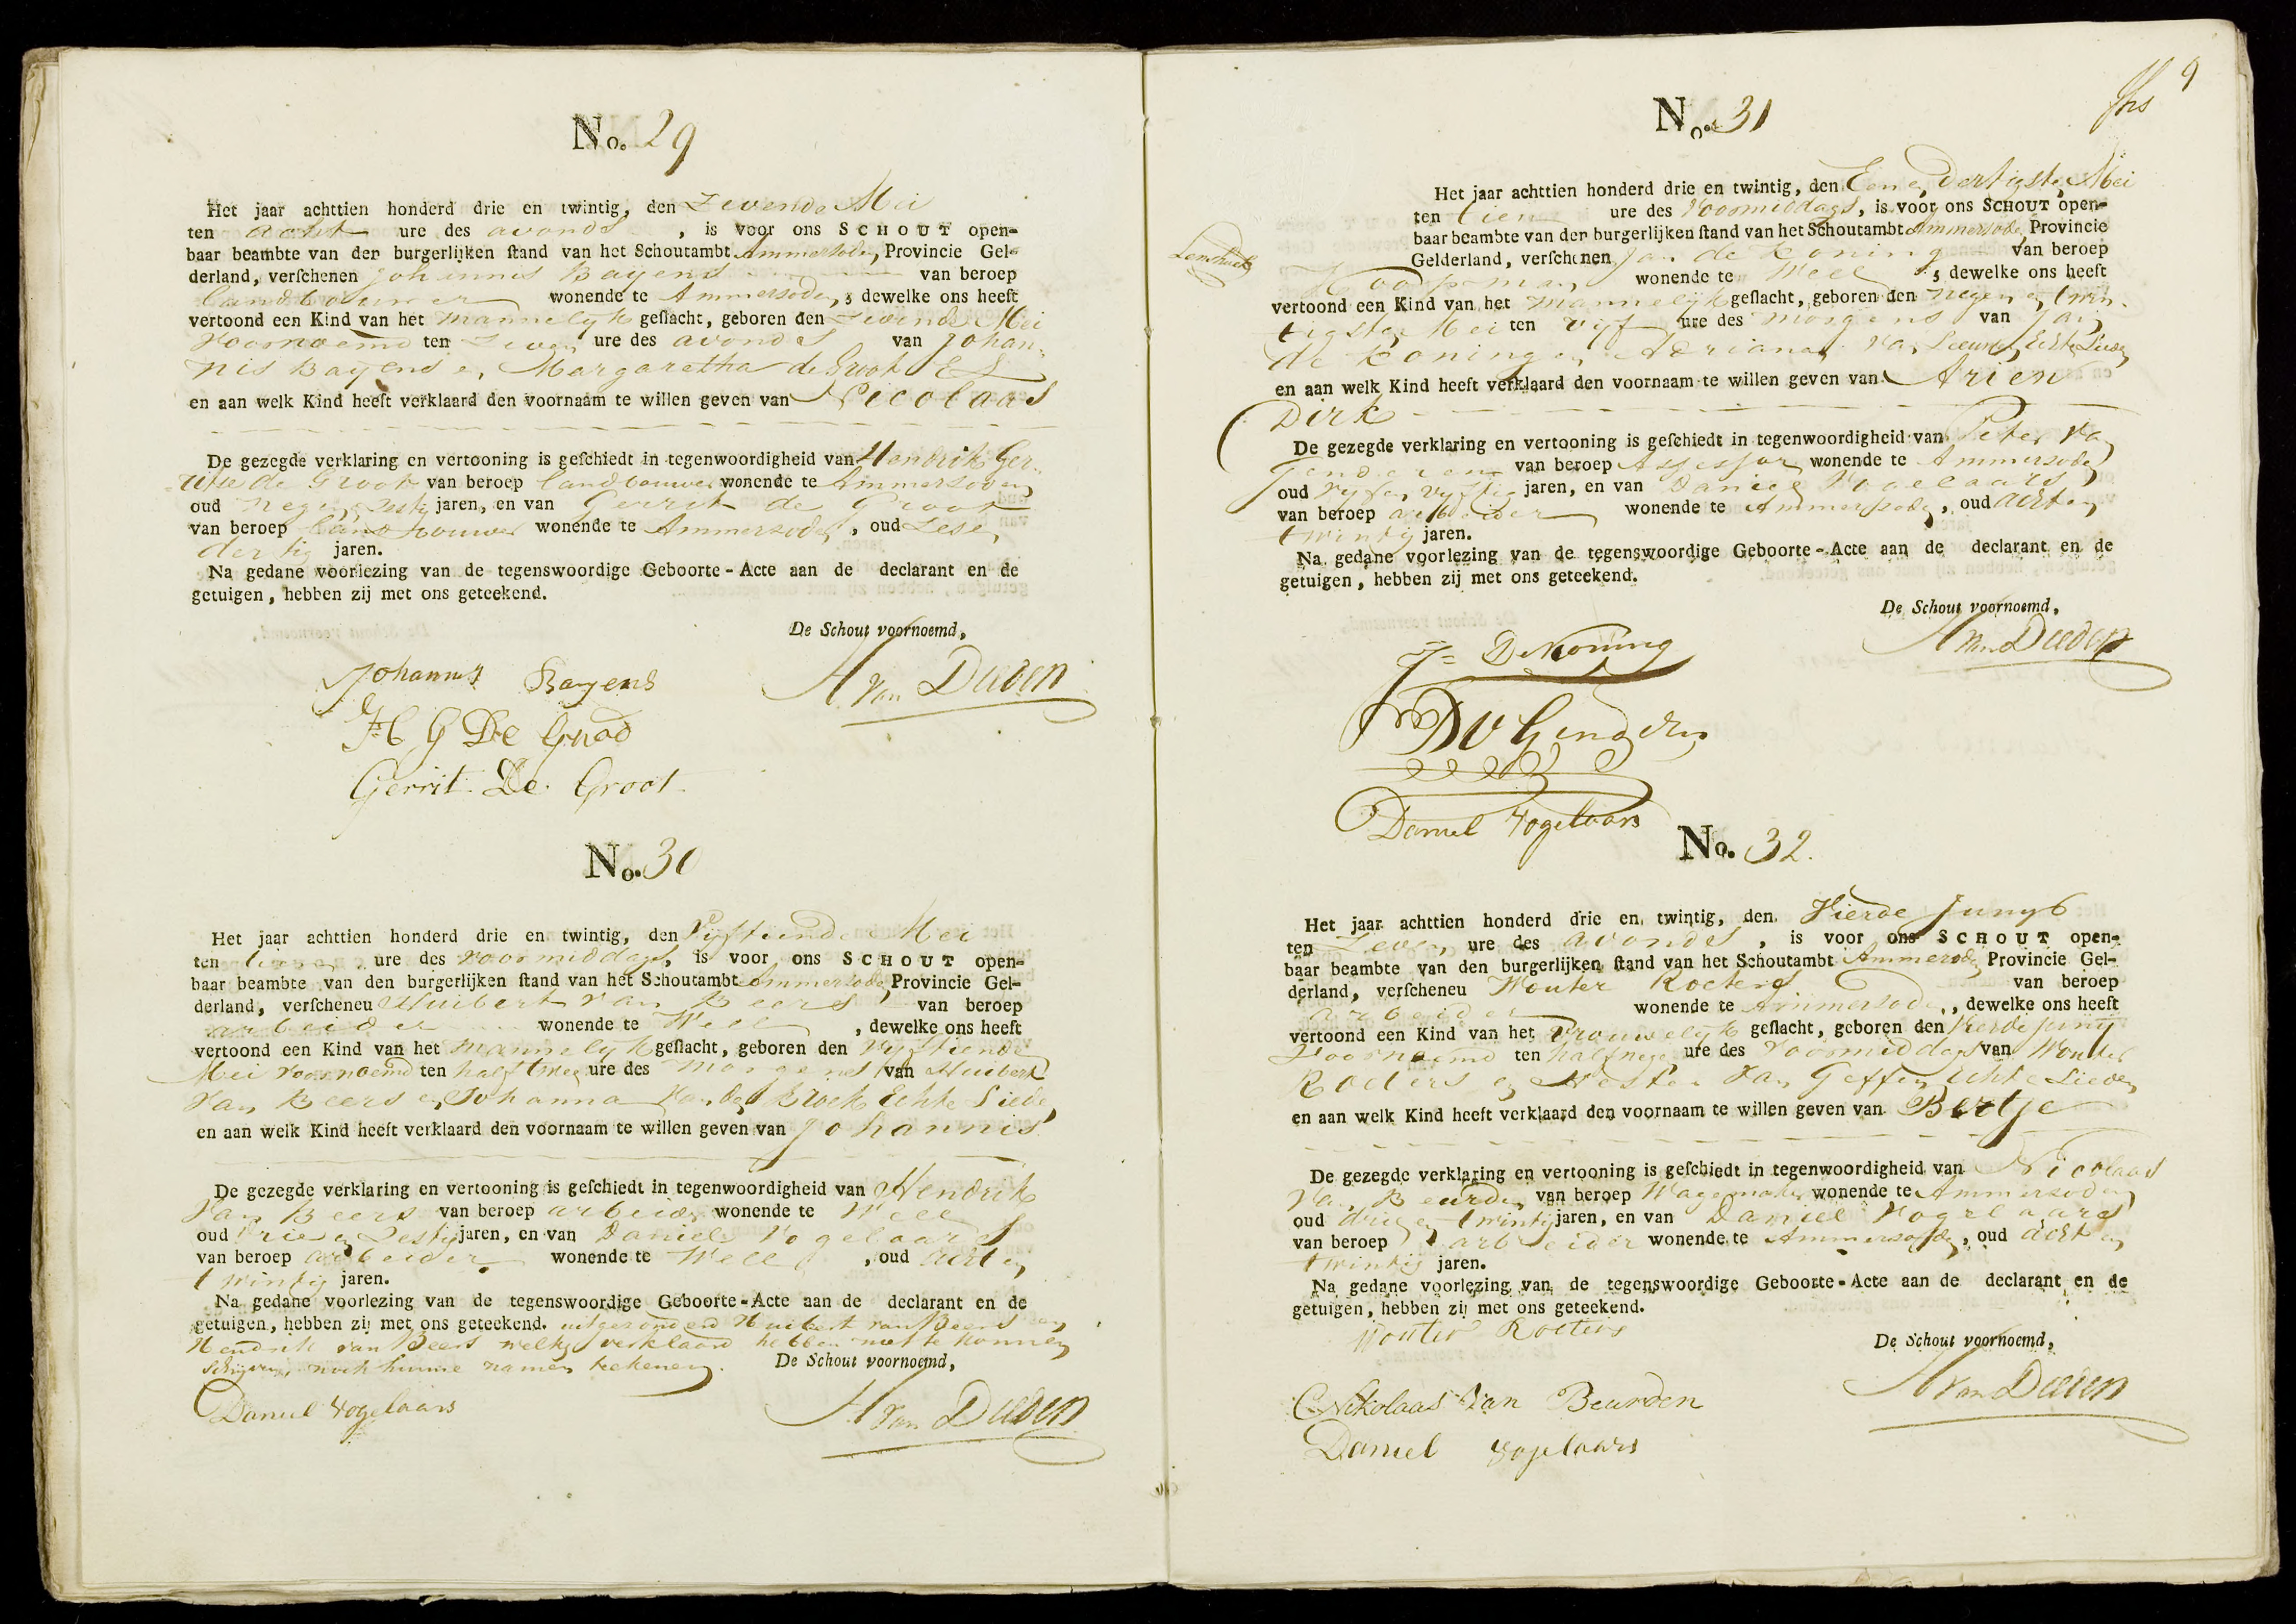 No. 29
Het jaar achttien honderd drie en twintig, den Zevende Mei
ten acht ure des avonds , is voor ons SCHOUT open-
baar beambte van den burgerlijken stand van het Schoutambt Ammersoden, Provincie Gel-
derland, verschenen Johannis Bayens van beroep
landbouwer wonende te Ammersoden, dewelke ons heeft
vertoond een Kind van het mannelijk geslacht, geboren den Zevende Mei
voornoemd ten Zeven ure des avonds van Johan-
nis Bayens en Margaretha de Groot E L
en aan welk Kind heeft verklaard den voornaam te willen geven van Nicolaas
De gezegde verklaring en vertooning is geschiedt in tegenwoordigheid van Hendrik Ger-
de Groot van beroep landbouwer wonende te Ammersoden
oud negen jaren, en van Gerrit de Groot
van beroep landbouwer wonende te Ammersoden, oud Zes en
dertig jaren.
Na gedane voorlezing van de tegenswoordige Geboorte-Acte aan de declarant en de
getuigen, hebben zij met ons geteekend.
De Schout voornoemd,
Johannis Bayens
A Van Deeden
H G De Groot
Gerrit De Groot
No. 30
Het jaar achttien honderd drie en twintig, den Vyftiende Mei
ten tien ure des voormiddags, is voor ons SCHOUT open-
baar beambte van den burgerlijken stand van het Schoutambt Ammersoden Provincie Gel-
derland, verscheneu Huibert van Beers van beroep
arbeider wonende te Well , dewelke ons heeft
vertoond een Kind van het mannelyk geslacht, geboren den Vyftiende
Mei voornoemd ten half twee ure des morgens van Huibert
Van Beers en Johanna Van den Broek Echte Lieden
en aan welk Kind heeft verklaard den voornaam te willen geven van Johannis
De gezegde verklaring en vertooning is geschiedt in tegenwoordigheid van Hendrik
Van Beers van beroep arbeider wonende te Well
oud Drie en Zestig jaren, en van Daniel Vogelaars
van beroep arbeider wonende te Well , oud acht en
twintig jaren.
Na gedane voorlezing van de tegenswoordige Geboorte-Acte aan de declarant en de
getuigen, hebben zij met ons geteekend. uitgezonderd Huibert van Beers en
Hendrik van Beers welke verklaard hebben niet te konnen
schryven noch hunne namen teekenen. De Schout voornoemd,
Daniel Vogelaars
A Van Deeden
9
No. 31
Het jaar achttien honderd drie en twintig, den Een en Dertigste Mei
ten tien ure des Voormiddags, is voor ons SCHOUT open-
baar beambte van den burgerlijken stand van het Schoutambt Ammersoden, Provincie
Gelderland, verschenen Jan de Koning van beroep
Koopman wonende te Well , dewelke ons heeft
vertoond een Kind van het mannelyk geslacht, geboren den negen en twin-
tigsten Mei ten vijf ure des morgens van Jan
de Koning en Adriana van Leeuwen Echte Lieden
en aan welk Kind heeft verklaard den voornaam te willen geven van Arien
Dirk
De gezegde verklaring en vertooning is geschiedt in tegenwoordigheid van Peter Van
Genderen van beroep Assessor wonende te Ammersoden
oud vyf en vyftig jaren, en van Daniel Vogelaars
van beroep arbeider wonende te Ammersoden, oud acht en
twintig jaren.
Na gedane voorlezing van de tegenswoordige Geboorte-Acte aan de declarant en de
getuigen, hebben zij met ons geteekend.
De Schout voornoemd,
J= De Koning
A Van Deeden
V Genderen
Daniel Vogelaars
No. 32.
Het jaar achttien honderd drie en twintig, den Vierde Juny
ten Zeven ure des avonds , is voor ons SCHOUT open-
baar beambte van den burgerlijken stand van het Schoutambt Ammersoden Provincie Gel-
derland, verscheneu Wouter Roeters van beroep
arbeider wonende te Ammersoden, dewelke ons heeft
vertoond een Kind van het Vrouwelyk geslacht, geboren den Vierde Juny
Voornoemd ten half negen ure des voormiddags van Wouter
Roeters en Nesken Van Geffen Echte Lieden
en aan welk Kind heeft verklaard den voornaam te willen geven van Bertje
De gezegde verklaring en vertooning is geschiedt in tegenwoordigheid van Nicolaas
Van Beurden van beroep Wagemaker wonende te Ammersoden
oud drie en twintig jaren, en van Daniel Vogelaars
van beroep arbeider wonende te Ammersoden, oud acht en
twintig jaren.
Na gedane voorlezing van de tegenswoordige Geboorte-Acte aan de declarant en de
getuigen, hebben zij met ons geteekend.
Wouter Roeters
De Schout voornoemd,
Nikolaas Van Beurden
A Van Deeden
Daniel Vogelaars